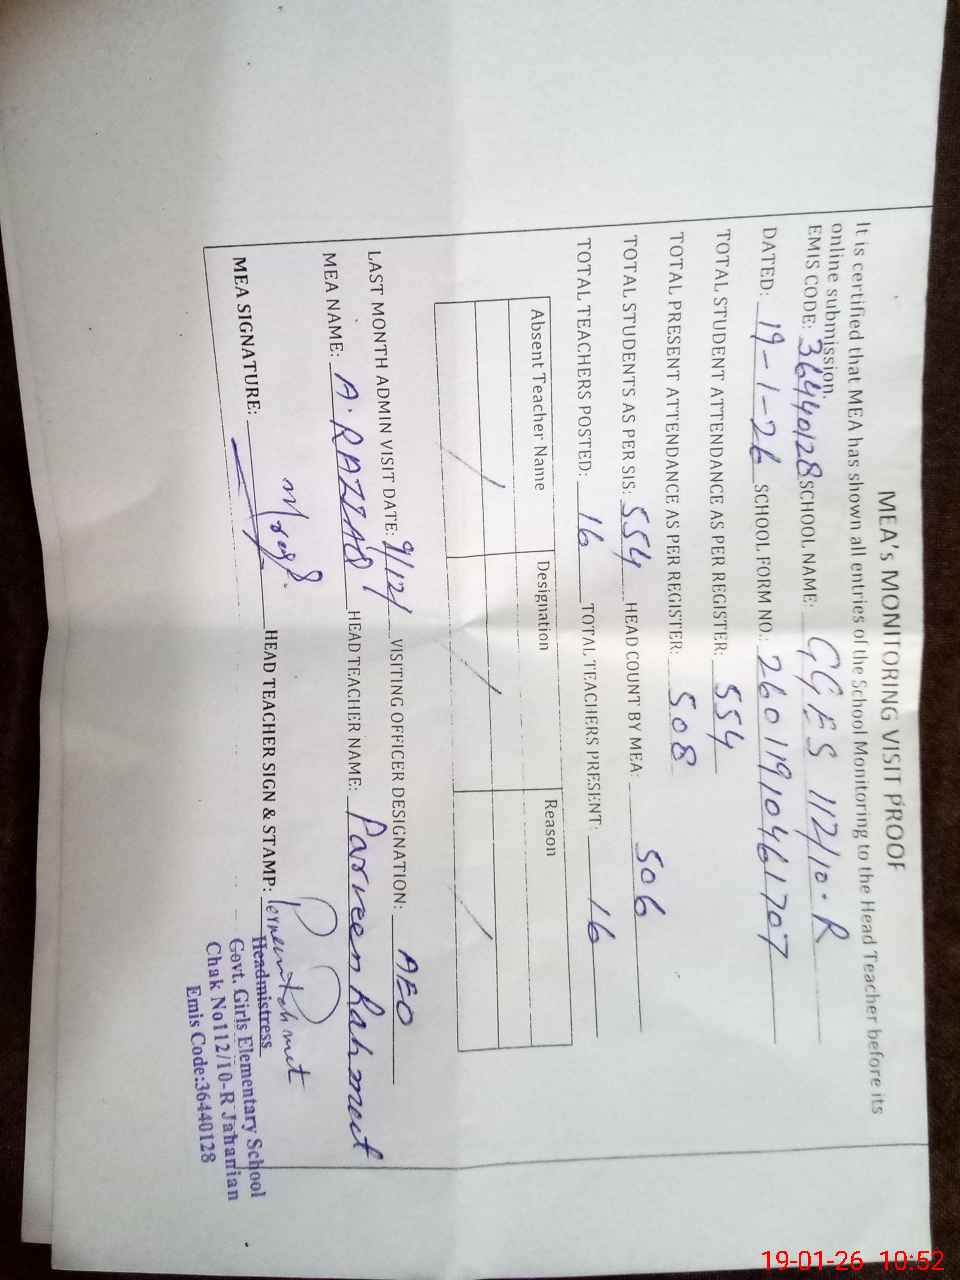 MEA's MONITORING VISIT PROOF
It is certified that MEA has shown all entries of the School Monitoring to the Head Teacher before its
online submission.
EMIS CODE: 36440128 SCHOOL NAME: GGES 112/10.R
DATED: 19-1-26 SCHOOL FORM NO.: 26011910461707
TOTAL STUDENT ATTENDANCE AS PER REGISTER: 554
TOTAL PRESENT ATTENDANCE AS PER REGISTER: 508
TOTAL STUDENTS AS PER SIS: 554 HEAD COUNT BY MEA: 506
TOTAL TEACHERS POSTED: 16 TOTAL TEACHERS PRESENT: 16
Absent Teacher Name Designation Reason
LAST MONTH ADMIN VISIT DATE: 9/12/ VISITING OFFICER DESIGNATION: AEO
MEA NAME: A.RAZZAQ HEAD TEACHER NAME: Parveen Rahmut
MEA SIGNATURE: HEAD TEACHER SIGN & STAMP:
Headmistress
Govt. Girls Elementary School
Chak No112/10-R Jahanian
Emis Code:36440128
19-01-26 10:52